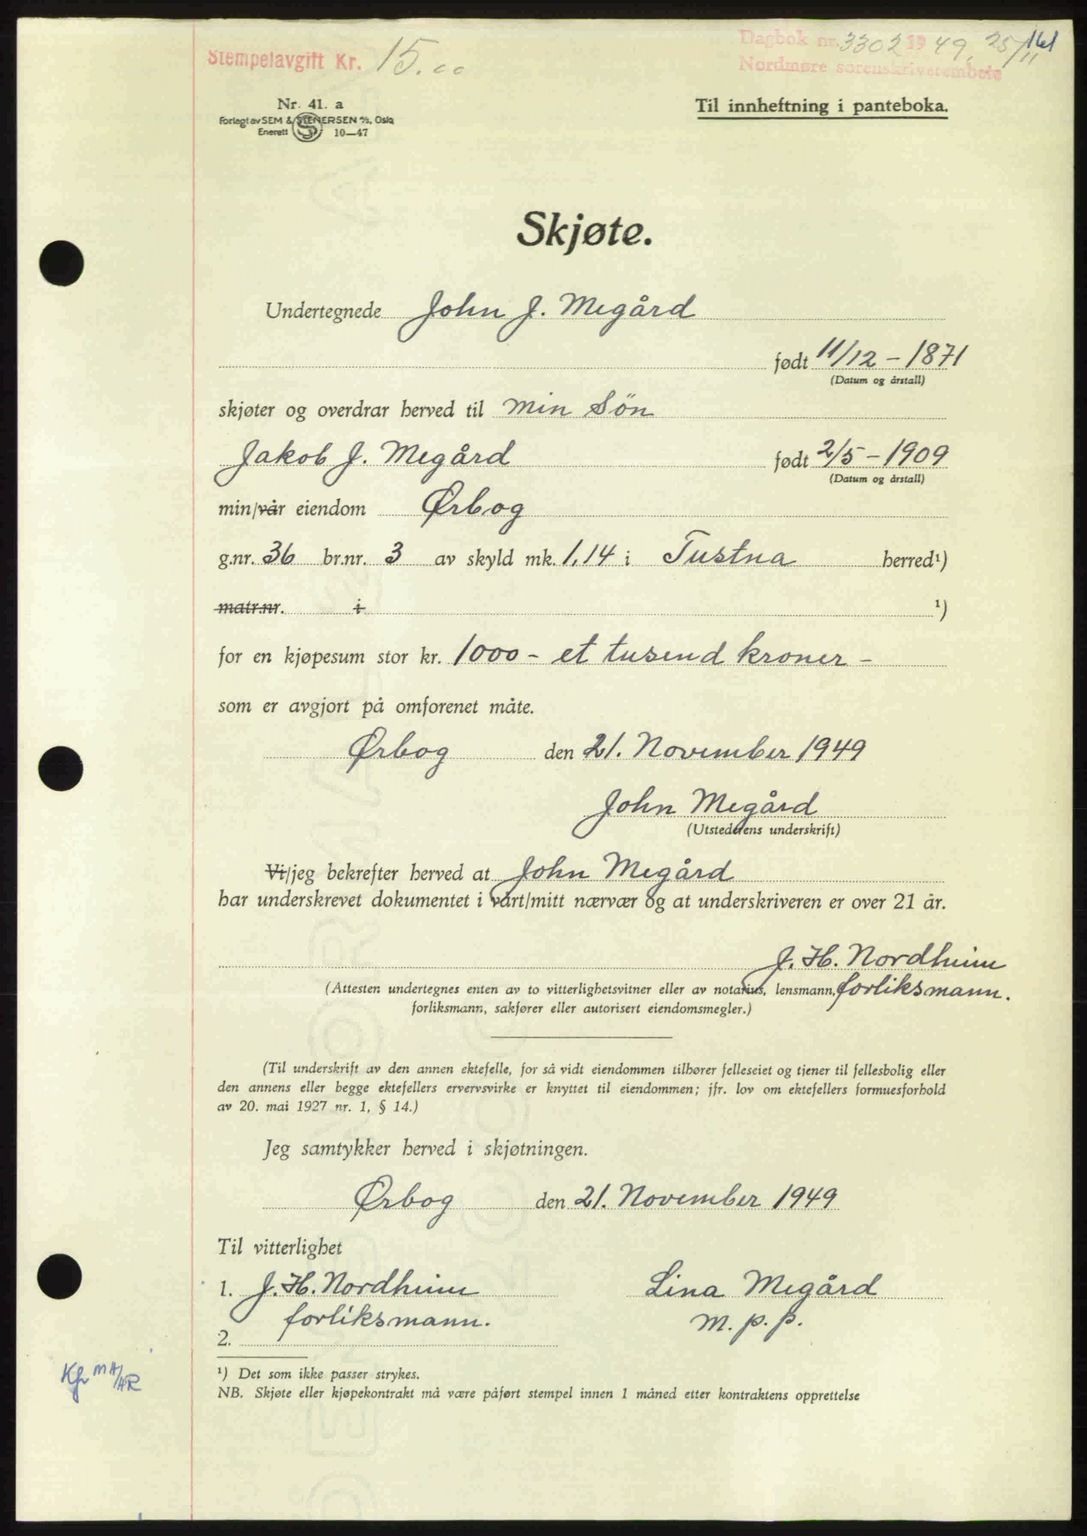 Stempelavgift Kr. 15.00
Dagbok nr. 3302 1949. 25/11 161
Nordmøre sorenskriverembete
Nr. 41. a
Forlagt av SEM & STENERSEN A/S, Oslo
Enerett S 10—47
Til innheftning i panteboka.
Skjøte.
Undertegnede John J. Megård
født 11/12 - 1871
(Datum og årstall)
skjøter og overdrar herved til min Sön
Jakob J. Megård født 2/5 - 1909
(Datum og årstall)
min/vår eiendom Ørbog
g.nr. 36 br.nr. 3 av skyld mk. 1,14 i Tustna herred¹)
matr.nr. i ¹)
for en kjøpesum stor kr. 1000 - et tusend kroner -
som er avgjort på omforenet måte.
Ørbog den 21. November 1949
John Megård
(Utstederens underskrift)
Vi/jeg bekrefter herved at John Megård
har underskrevet dokumentet i vårt/mitt nærvær og at underskriveren er over 21 år.
J. H. Nordheim
(Attesten undertegnes enten av to vitterlighetsvitner eller av notarius, lensmann, forliksmann.
forliksmann, sakfører eller autorisert eiendomsmegler.)
(Til underskrift av den annen ektefelle, for så vidt eiendommen tilhører felleseiet og tjener til fellesbolig eller
den annens eller begge ektefellers ervervsvirke er knyttet til eiendommen; jfr. lov om ektefellers formuesforhold
av 20. mai 1927 nr. 1, § 14.)
Jeg samtykker herved i skjøtningen.
Ørbog den 21. November 1949
Til vitterlighet
1. J. H. Nordheim Lina Megård
forliksmann. m. p. p.
2.
¹) Det som ikke passer strykes.
Kfr MA/AR
NB. Skjøte eller kjøpekontrakt må være påført stempel innen 1 måned etter kontraktens opprettelse